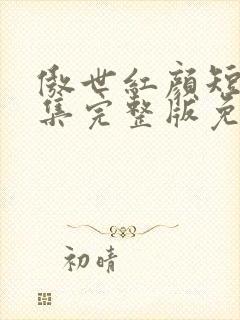 傲世紅顏短
集完整版免
初晴